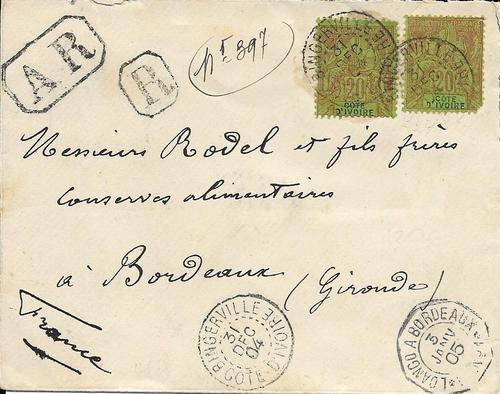 AR
R
nº 397
BINGERVILLE
31
DEC
20
20
CÔTE
D'IVOIRE
CÔTE
D'IVOIRE
Messieurs Rödel et fils frères
conserves alimentaires
à Bordeaux (Gironde)
France
BINGERVILLE
31
DEC
04
CÔTE-D'IVOIRE
LOANGO A BORDEAUX
3
JANV
05